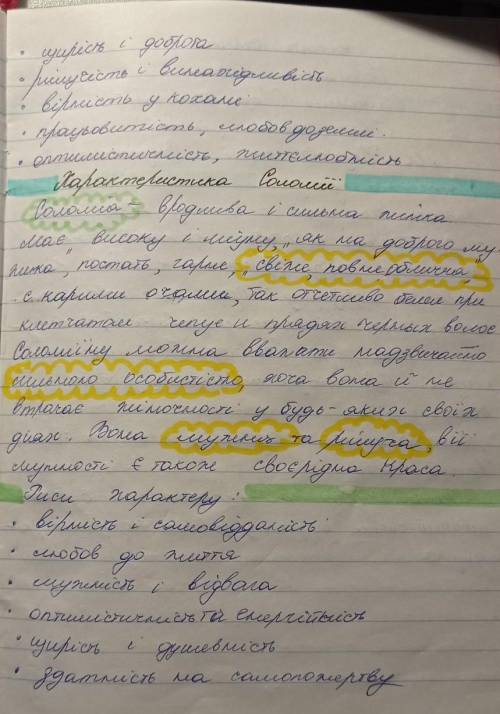 • щирість і доброта
• рішучість і винахідливість
• вірність у коханні
• працьовитість, любов до землі.
• оптимістичність, життєлюбність
Характеристика Соломії
Соломія - вродлива і сильна жінка
має високу і міцну, „як на доброго му-
жика", постать, гарне, „свіже, повне обличчя
с карими очами, так отчетливо белел при
клетчатом чепце и прядях черных волос
Соломіїну можна вважати надзвичайно
сильною особистістю, хоча вона й не
втрачає жіночності у будь-яких своїх
діях. Вона мужня та рішуча, в її
мужності є також своєрідна краса.
Риси характеру:
• вірність і самовідданість
• любов до життя
• мужність і відвага
• оптимістичність та енергійність
• щирість і душевність
• здатність на самопожертву